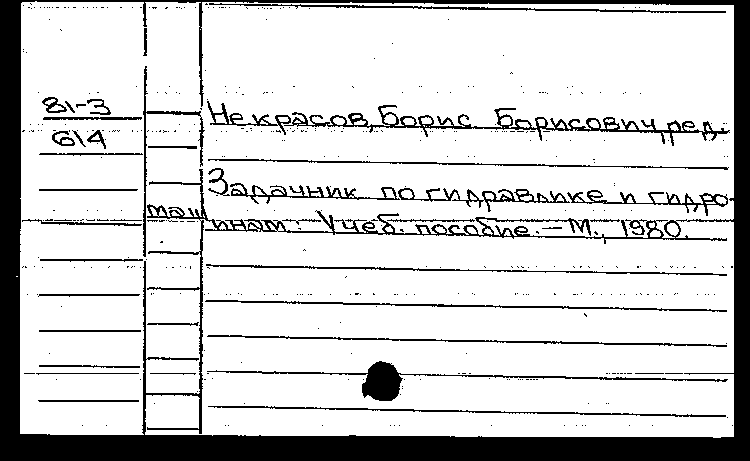 81-3
614
Некрасов, Борис Борисович, ред.
Задачник по гидравлике и гидро-
машинам: Учеб. пособие. – М., 1980.